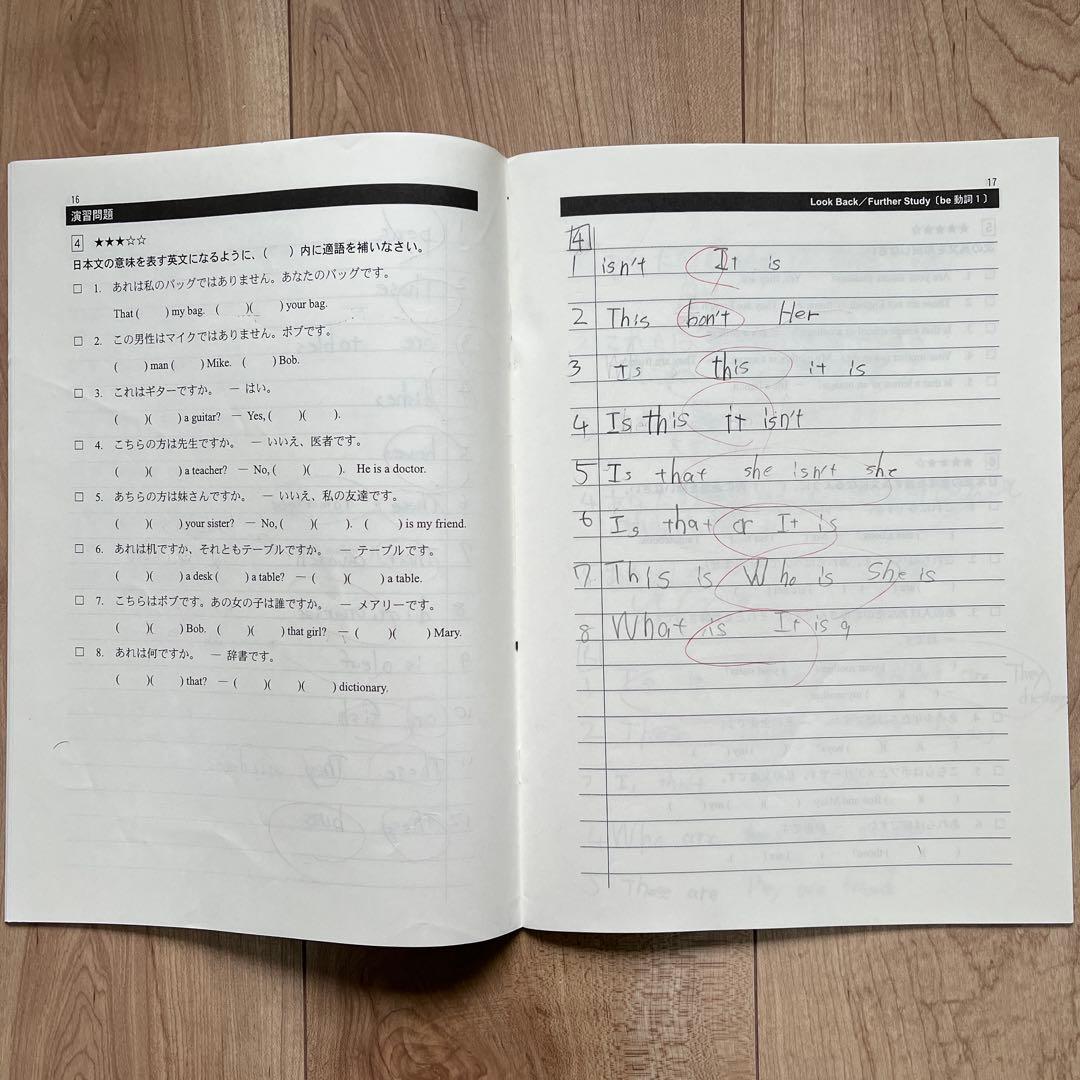 16
演習問題
4 ★★★☆☆
日本文の意味を表す英文になるように、（　）内に適語を補いなさい。
□ 1. あれは私のバッグではありません。あなたのバッグです。
That (　) my bag. (　)(　) your bag.
□ 2. この男性はマイクではありません。ボブです。
(　) man (　) Mike. (　) Bob.
□ 3. これはギターですか。 － はい。
(　)(　) a guitar? － Yes, (　)(　).
□ 4. こちらの方は先生ですか。 － いいえ、医者です。
(　)(　) a teacher? － No, (　)(　). He is a doctor.
□ 5. あちらの方は妹さんですか。 － いいえ、私の友達です。
(　)(　) your sister? － No, (　)(　). (　) is my friend.
□ 6. あれは机ですか、それともテーブルですか。 － テーブルです。
(　)(　) a desk (　) a table? － (　)(　) a table.
□ 7. こちらはボブです。あの女の子は誰ですか。 － メアリーです。
(　)(　) Bob. (　)(　) that girl? － (　)(　) Mary.
□ 8. あれは何ですか。 － 辞書です。
(　)(　) that? － (　)(　)(　) dictionary.
17
Look Back／Further Study〔be 動詞 1〕
4
1 isn't It is
2 This bon't Her
3 Is this it is
4 Is this it isn't
5 Is that she isn't she
6 Is that or It is
7 This is Who is She is
8 What is It is a